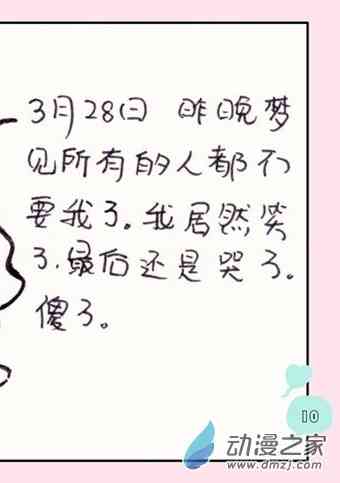 3月28日 昨晚梦
见所有的人都不
要我了。我居然笑
了.最后还是哭了。
傻了。
10
动漫之家
www.dmzj.com